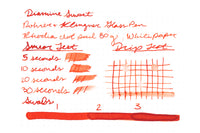 Diamine Sunset
Rohrer & Klingner Glass Pen
Rhodia dot pad 80g White Paper
Smear Test Drip Test
5 seconds
10 seconds
20 seconds
30 seconds
Swabs
1 2 3